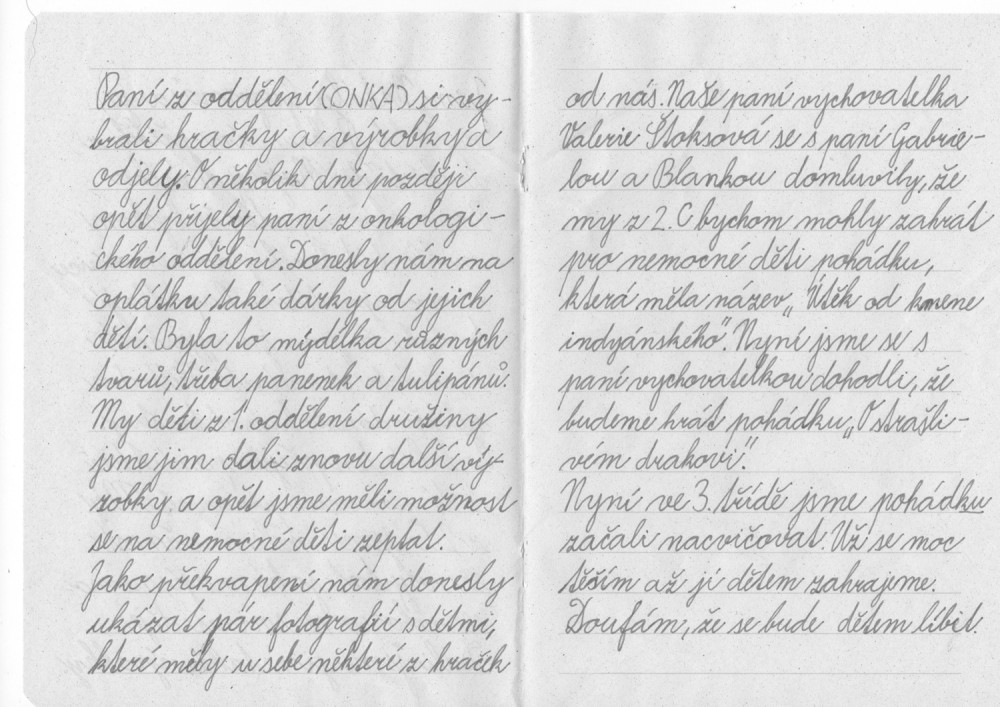 Paní z oddělení (ONKA) si vy-
brali hračky a výrobky a
odjely. O několik dní později
opět přijely paní z onkologi-
ckého oddělení. Donesly nám na
oplátku také dárky od jejich
dětí. Byla to mýdélka různých
tvarů, třeba panenek a tulipánů.
My děti z 1. oddělení družiny
jsme jim dali znovu další vý-
robky a opět jsme měli možnost
se na nemocné děti zeptat.
Jako překvapení nám donesly
ukázat pár fotografií s dětmi,
které měly u sebe některé z hraček
od nás. Naše paní vychovatelka
Valerie Štoksová se s paní Gabrie-
lou a Blankou domluvily, že
my z 2. C bychom mohly zahrát
pro nemocné děti pohádku,
která měla název „Útěk od kmene
indyánského“. Nyní jsme se s
paní vychovatelkou dohodli, že
budeme hrát pohádku „O strašli-
vém drakovi“.
Nyní ve 3. třídě jsme pohádku
začali nacvičovat. Už se moc
těším až ji dětem zahrajeme.
Doufám, že se bude dětem líbit.